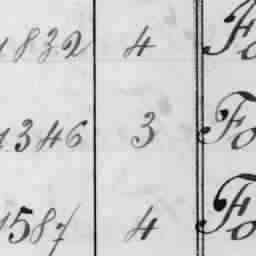 1832 4 Fo
1346 3 Fo
1587 4 Fo